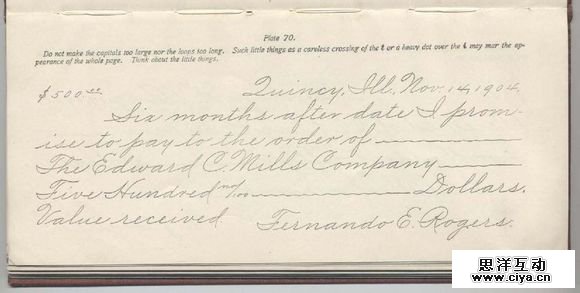 Plate 70.
Do not make the capitals too large nor the loops too long. Such little things as a careless crossing of the t or a heavy dot over the i may mar the ap-
pearance of the whole page. Think about the little things.
$500 00 Quincy, Ill., Nov. 14, 1904.
Six months after date I prom-
ise to pay to the order of
The Edward C. Mills Company
Five Hundred no/100 Dollars.
Value received. Fernando E. Rogers.
思洋互动
www.ciya.cn